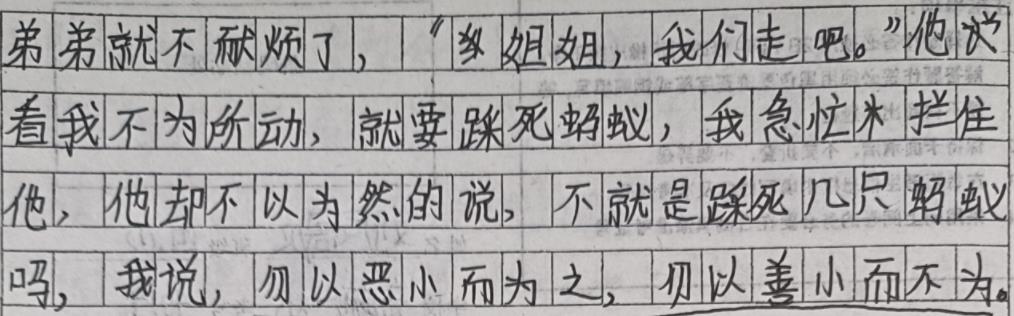 弟弟就不耐烦了，“姐姐，我们走吧。”他
看我不为所动，就要踩死蚂蚁，我急忙拦住
他，他却不以为然的说，不就是踩死几只蚂蚁
吗，我说，勿以恶小而为之，勿以善小而不为。